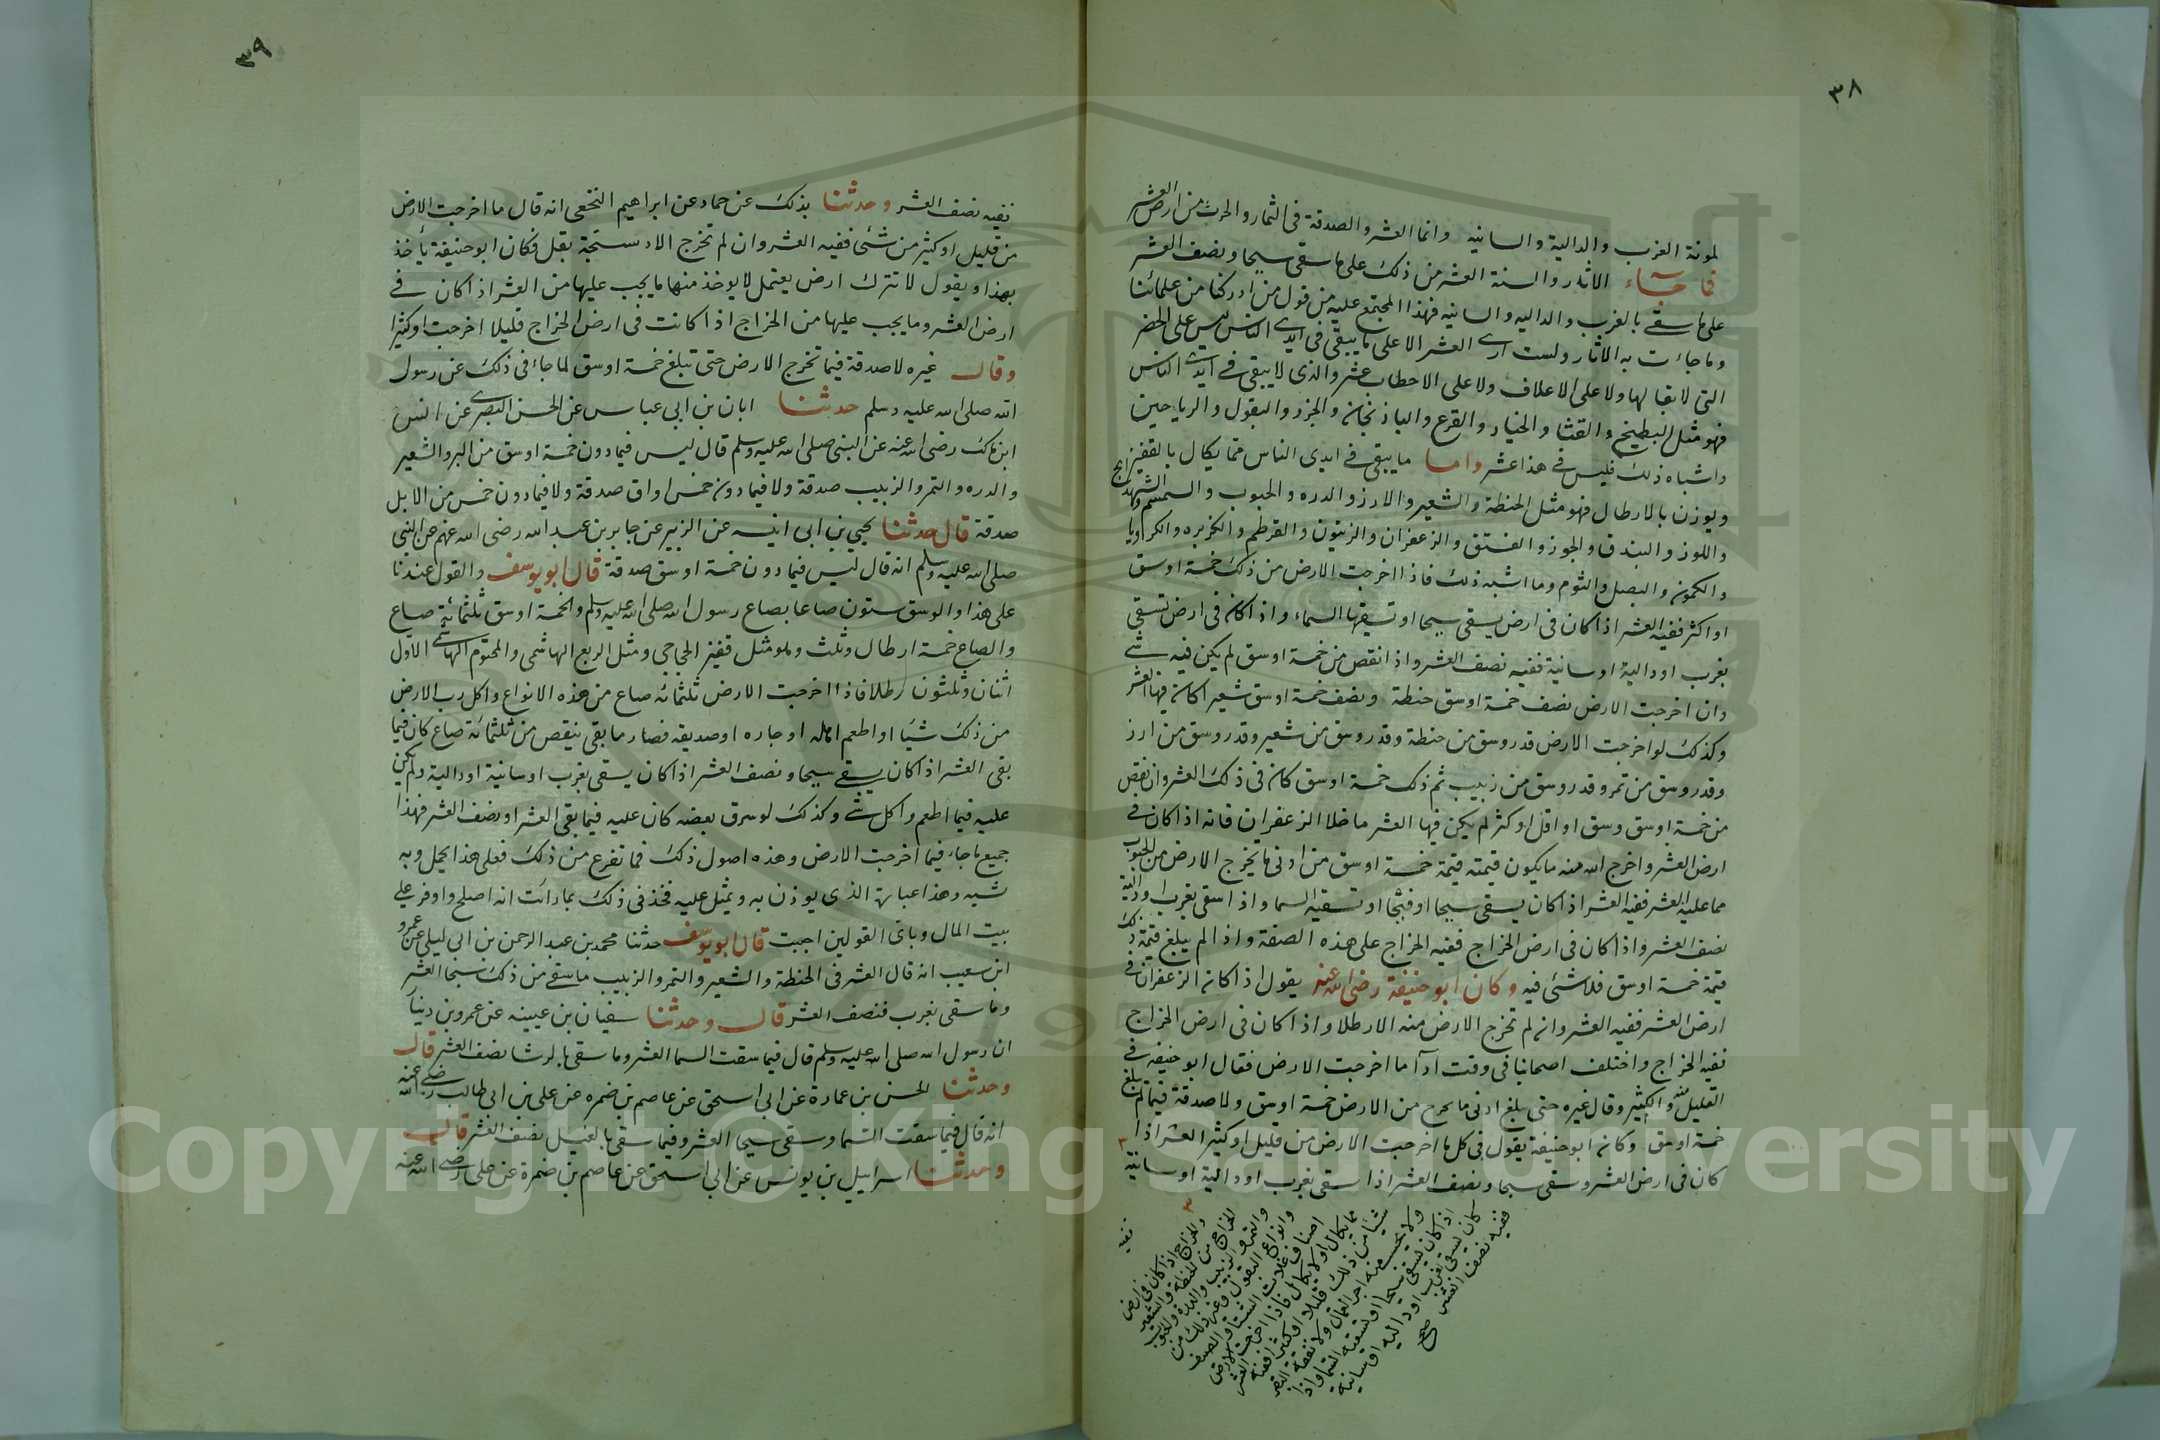 ٣٨
لمونة الغرب والدالية والسانيه وانما العشر والصدقة فى الثمار والحرث من ارض العشر
فما جآء الاثار والسنة العشر من ذلك على ما سقى سيحا ونصف العشر
على ما سقے بالغرب والداليه والسانيه فهذا المجتمع عليه من قول من ادركنا من علمائنا
وما جاءت به الاثار ولست ارى العشر الا على ما يبقى فى ايدے الناس ليس على الخضر
التى لا بقا لها ولا على الاعلاف ولا على الاحطاب عشر والذى لا يبقى فے ايدے الناس
فهو مثل البطيخ والقثا والخيار والقرع والباذنجان والجزر والبقول والرياحين
واشباه ذلك فليس فے هذا عشر واما ما يبقى فے ايدى الناس مما يكال بالقفيز
ويوزن بالارطال فهو مثل الحنطة والشعير والارز والدره والحبوب والسمسم والشهدانج
واللوز والبندق والجوز والفستق والزعفران والزيتون والقرطم والكزبره والكراويا
والكمون والبصل والثوم وما اشبه ذلك فاذا اخرجت الارض من ذلك خمسة اوسق
او اكثر ففيه العشر اذا كان فى ارض يسقى سيحا او تسقيها السماء واذا كان فى ارض تسقى
بغرب او دالية او سانية ففيه نصف العشر واذا نقص من خمسة اوسق لم يكن فيه شے
وان اخرجت الارض نصف خمسة اوسق حنطة ونصف خمسة اوسق شعير اكان فيها العشر
وكذلك لو اخرجت الارض قدر وسق من حنطة وقدر وسق من شعير وقدر وسق من ارز
وقدر وسق من تمر وقدر وسق من زبيب ثم ذلك خمسة اوسق كان فى ذلك العشر وان نقص
من خمسة اوسق وسق او اقل او كثر لم يكن فيها العشر ما خلا الزعفران فانه اذا كان فے
ارض العشر واخرج الله منه ما يكون قيمته قيمة خمسة اوسق من ادنى ما يخرج الارض من الحبوب
مما عليه العشر ففيه العشر اذا كان يسقى سيحا او فيحا او تسقيه السما واذا سقى بغرب او دالية
نصف العشر واذا كان فى ارض الخراج ففيه الخراج على هذه الصفة واذا لم يبلغ قيمة ذلك
قيمة خمسة اوسق فلا شئى فيه وكان ابو حنيفة رضى الله عنه يقول اذا كان الزعفران فے
ارض العشر ففيه العشر وان لم تخرج الارض منه الا رطلا واذا كان فى ارض الخراج
نفيه الخراج واختلف اصحابنا فى وقت آدآ ما اخرجت الارض فقال ابو حنيفه فے
القليل والكثير وقال غيره حتى يبلغ ادنى ما يخرج من الارض خمسة اوسق ولا صدقة فيما لم يبلغ
خمسة اوسق وكان ابو حنيفة يقول فى كل ما اخرجت الارض من قليل او كثير العشر اذا
كان فى ارض العشر وسقى سيحا ونصف العشر اذا سقى بغرب او دالية او سانية
والخراج اذا كان فى ارض
الخراج من الحنطة والشعير
والتمر والزبيب والدرة والحبوب
وانواع البقول وغير ذلك من
اصناف غلات الشتا والصيف
مما يكال او لا يكال فاذا اخرجت الارض
شيئا من ذلك قليلا او كثيرا ففيه العشر
ولا يحسب منه اجر العمال ولا نفقة البقر
اذا كان يسقى سيحا او تسقيه السما واذا
كان يسقى بغرب او دالية او سانية
ففيه نصف العشر صح
٣٩
نفيه نصف العشر وحدثنا بذلك عن حماد عن ابراهيم النخعى انه قال ما اخرجت الارض
من قليل او كثير من شئى ففيه العشر وان لم تخرج الا دستجة بقل فكان ابو حنيفة يأخذ
بهذا ويقول لا تترك ارض يعتمل لا يوخذ منها ما يجب عليها من العشر اذا كان فے
ارض العشر وما يجب عليها من الخراج اذا كانت فى ارض الخراج قليلا اخرجت او كثيرا
وقال غيره لا صدقة فيما تخرج الارض حتى تبلغ خمسة اوسق لما جاء فى ذلك عن رسول
الله صلى الله عليه وسلم حدثنا ابان بن ابى عباس عن الحسن البصرى عن انس
ابن مالك رضى الله عنه عن النبى صلى الله عليه وسلم قال ليس فيما دون خمسة اوسق من البر والشعير
والدره والتمر والزبيب صدقة ولا فيما دون خمس اواق صدقة ولا فيما دون خمس من الابل
صدقة قال حدثنا يحيى بن ابى انيسه عن الزبير عن جابر بن عبد الله رضى الله عنهم عن النبى
صلى الله عليه وسلم انه قال ليس فيما دون خمسة اوسق صدقة قال ابو يوسف والقول عندنا
على هذا والوسق ستون صاعا بصاع رسول الله صلى الله عليه وسلم والخمسة اوسق ثلثمائة صاع
والصاع خمسة ارطال وثلث وهو مثل قفيز الحجاجى ومثل الربع الهاشمى والمختوم الهاشے الاول
اثنان وثلثون رطلا فاذا اخرجت الارض ثلثمائة صاع من هذه الانواع واكل رب الارض
من ذلك شيئا او اطعم اهله او جاره او صديقه فصار ما بقى ينقص من ثلثمائة صاع كان فيما
بقى العشر اذا كان يسقے سيحا ونصف العشر اذا كان يسقى بغرب او سانية او دالية ولم يكن
عليه فيما اطعم واكل شے وكذلك لو سرق بعضه كان عليه فيما بقى العشر او نصف العشر فهذا
جميع ما جاء فيما اخرجت الارض وهذه اصول ذلك فما تفرع من ذلك فعلى هذا يحمل وبه
شبه وهذا عباية الذى يوزن به ويمثل عليه فخذ فى ذلك بما رائت انه اصلح واوفر على
بيت المال وباى القولين احببت قال ابو يوسف حدثنا محمد بن عبد الرحمن بن ابى ليلى عن عمرو
ابن سعيب انه قال العشر فى الحنطة والشعير والتمر والزبيب ما سقے من ذلك سيحا العشر
وما سقى بغرب فنصف العشر قال وحدثنا سفيان بن عيينه عن عمرو بن دينار
ان رسول الله صلى الله عليه وسلم قال فيما سقت السما العشر وما سقى بالرشا نصف العشر قال
وحدثنا الحسن بن عمارة عن ابى اسحق عن عاصم بن ضمره عن على بن ابى طالب رضے الله عنه
انه قال فيما سقت السما وسقى سيحا العشر وفيما سقى بالغيل نصف العشر قال
وحدثنا اسرايل بن يونس عن ابى اسحق عن عاصم بن ضمرة عن على رضے الله عنه
Copyright © King Saud University